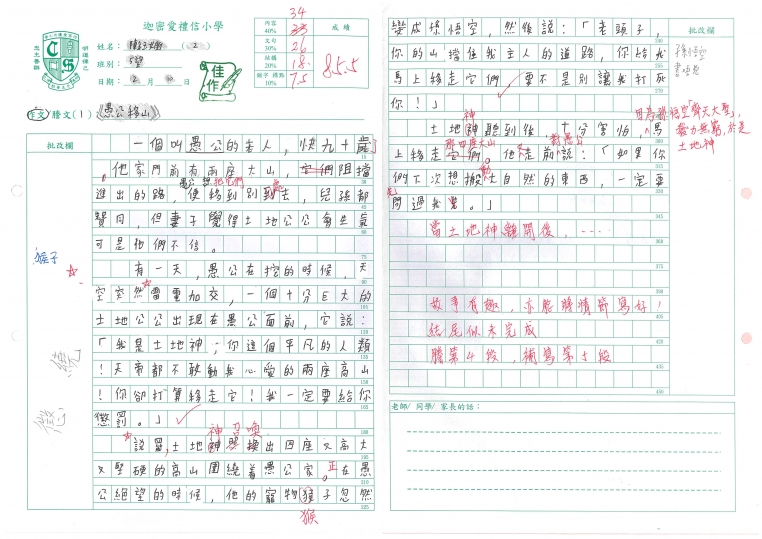 迦密愛禮信小學
內容 40%
文句 30%
結構 20%
錯字 標點 10%
34
26
18
7.5
成績
85.5
姓名：
(2)
班別：
日期：2月10日
佳作
作文/謄文(1)：《愚公移山》
批改欄
一個叫愚公的老人，快九十歲
，他家門前有兩座大山，它們阻擋
愚公想把它們
進出的路，便移到別到去，兒孫都
處
贊同，但妻子覺得土地公公會生氣
可是他們不信。
猴子
有一天，愚公在挖的時候，天
空突然雷電加交，一個十分巨大的
土地公公出現在愚公面前，它說：
「我是土地神，你這個平凡的人類
！天帝都不敢動我心愛的兩座高山
！你卻打算移走它！我一定要給你
懲罰。」
繞
懲
神召喚
說罷，土地神召換出四座又高大
又堅硬的高山圍繞着愚公家。正在愚
公絕望的時候，他的寵物猴子忽然
猴
變成孫悟空，然後說：「老頭子，
你的山擋住我主人的道路，你給我
馬上移走它們，要不是別讓我打死
你！」
批改欄
孫悟空
神
土地神聽到後，十分害怕，馬
因為孫悟空「齊天大聖」，
法力無窮，於是
土地神
那四座大山
對愚公
上移走它們。他走前說：「如果你
們下次想搬大自然的東西，一定要
動
先
問過我。」
當土地神離開後，……
故事有趣，亦能將情節寫好！
結尾似未完成
謄第4段，補寫第5段
老師/ 同學/ 家長的話：